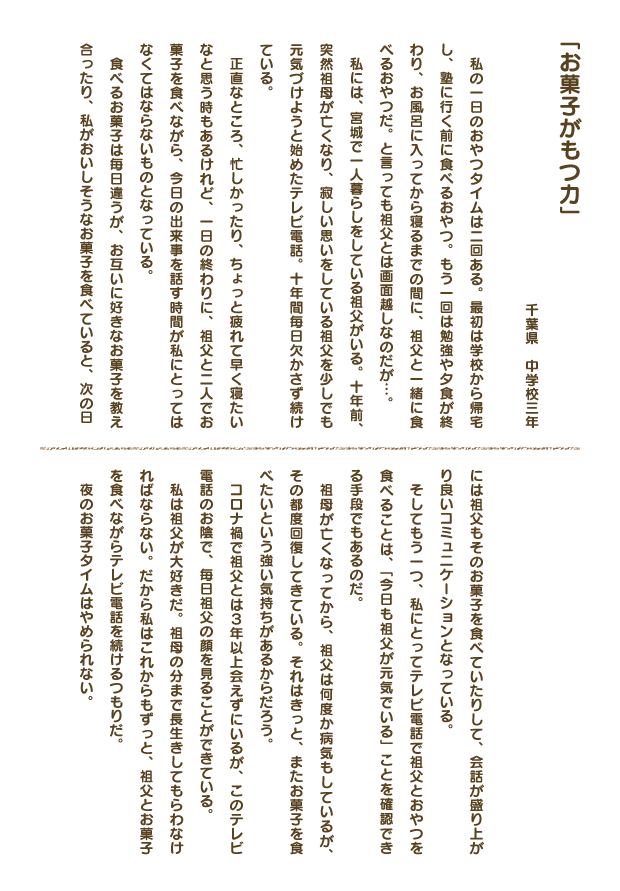 「お菓子がもつ力」
千葉県　中学校三年
　私の一日のおやつタイムは二回ある。最初は学校から帰宅
し、塾に行く前に食べるおやつ。もう一回は勉強や夕食が終
わり、お風呂に入ってから寝るまでの間に、祖父と一緒に食
べるおやつだ。と言っても祖父とは画面越しなのだが…。
　私には、宮城で一人暮らしをしている祖父がいる。十年前、
突然祖母が亡くなり、寂しい思いをしている祖父を少しでも
元気づけようと始めたテレビ電話。十年間毎日欠かさず続け
ている。
　正直なところ、忙しかったり、ちょっと疲れて早く寝たい
なと思う時もあるけれど、一日の終わりに、祖父と二人でお
菓子を食べながら、今日の出来事を話す時間が私にとっては
なくてはならないものとなっている。
　食べるお菓子は毎日違うが、お互いに好きなお菓子を教え
合ったり、私がおいしそうなお菓子を食べていると、次の日
には祖父もそのお菓子を食べていたりして、会話が盛り上が
り良いコミュニケーションとなっている。
　そしてもう一つ、私にとってテレビ電話で祖父とおやつを
食べることは、「今日も祖父が元気でいる」ことを確認でき
る手段でもあるのだ。
　祖母が亡くなってから、祖父は何度か病気もしているが、
その都度回復してきている。それはきっと、またお菓子を食
べたいという強い気持ちがあるからだろう。
　コロナ禍で祖父とは３年以上会えずにいるが、このテレビ
電話のお陰で、毎日祖父の顔を見ることができている。
　私は祖父が大好きだ。祖母の分まで長生きしてもらわなけ
ればならない。だから私はこれからもずっと、祖父とお菓子
を食べながらテレビ電話を続けるつもりだ。
　夜のお菓子タイムはやめられない。